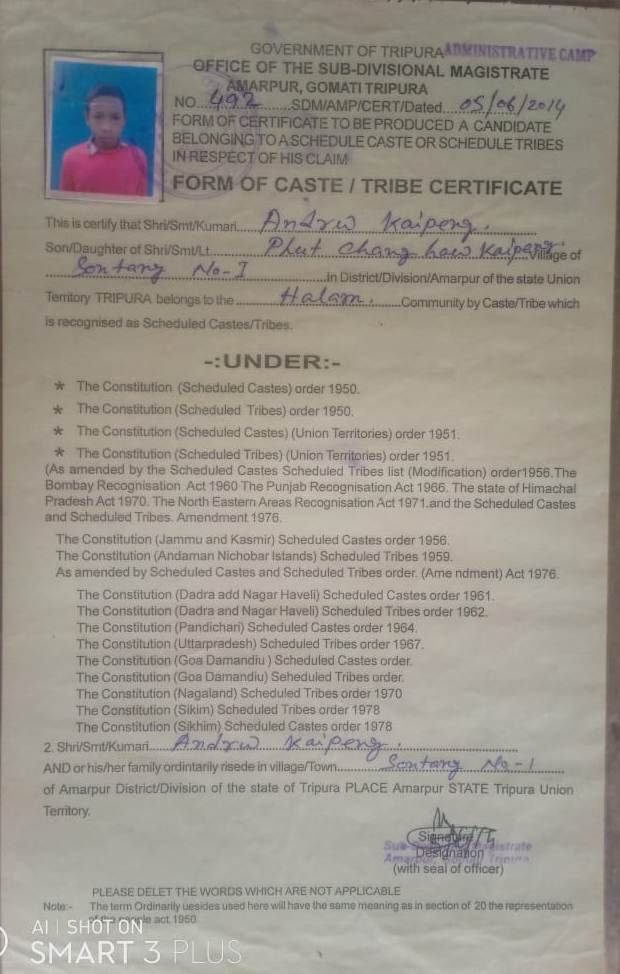 GOVERNMENT OF TRIPURA ADMINISTRATIVE CAMP
OFFICE OF THE SUB-DIVISIONAL MAGISTRATE
AMARPUR, GOMATI TRIPURA
NO....492.....SDM/AMP/CERT/Dated....05/06/2014
FORM OF CERTIFICATE TO BE PRODUCED A CANDIDATE
BELONGING TO A SCHEDULE CASTE OR SCHEDULE TRIBES
IN RESPECT OF HIS CLAIM
FORM OF CASTE / TRIBE CERTIFICATE
This is certify that Shri/Smt/Kumari....Andrw Kaipeng.
Son/Daughter of Shri/Smt/Lt....Phut Chang haw Kaipeng Village of
Sontang No-I....in District/Division/Amarpur of the state Union
Territory TRIPURA belongs to the....Halam.....Community by Caste/Tribe which
is recognised as Scheduled Castes/Tribes.
-:UNDER:-
* The Constitution (Scheduled Castes) order 1950.
* The Constitution (Scheduled Tribes) order 1950.
* The Constitution (Scheduled Castes) (Union Territories) order 1951.
* The Constitution (Scheduled Tribes) (Union Territories) order 1951.
(As amended by the Scheduled Castes Scheduled Tribes list (Modification) order1956.The
Bombay Recognisation Act 1960 The Punjab Recognisation Act 1966. The state of Himachal
Pradesh Act 1970. The North Eastern Areas Recognisation Act 1971.and the Scheduled Castes
and Scheduled Tribes. Amendment 1976.
The Constitution (Jammu and Kasmir) Scheduled Castes order 1956.
The Constitution (Andaman Nichobar Islands) Scheduled Tribes 1959.
As amended by Scheduled Castes and Scheduled Tribes order. (Ame ndment) Act 1976.
The Constitution (Dadra add Nagar Haveli) Scheduled Castes order 1961.
The Constitution (Dadra and Nagar Haveli) Scheduled Tribes order 1962.
The Constitution (Pandichari) Scheduled Castes order 1964.
The Constitution (Uttarpradesh) Scheduled Tribes order 1967.
The Constitution (Goa Damandiu ) Scheduled Castes order.
The Constitution (Goa Damandiu) Seheduled Tribes order.
The Constitution (Nagaland) Scheduled Tribes order 1970
The Constitution (Sikim) Scheduled Tribes order 1978
The Constitution (Sikhim) Scheduled Castes order 1978
2. Shri/Smt/Kumari....Andrw Kaipeng.
AND or his/her family ordintarily risede in village/Town....Sontang No-1
of Amarpur District/Division of the state of Tripura PLACE Amarpur STATE Tripura Union
Territory.
Signature
Sub-Divisional Magistrate
Designation
Amarpur, Gomati Tripura
(with seal of officer)
PLEASE DELET THE WORDS WHICH ARE NOT APPLICABLE
Note:- The term Ordinarily uesides used here will have the same meaning as in section of 20 the representation
of the people act.1950.
AI | SHOT ON
SMART 3 PLUS